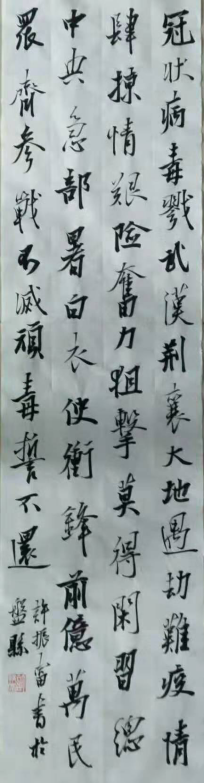 冠状病毒戮武漢荆襄大地遇劫難疫情
肆掠情艱險奮力狙擊莫得閑習總
中央急部署白衣使衝鋒前億萬民
眾齊參戰不滅頑毒誓不還
許振雷书於
盤縣